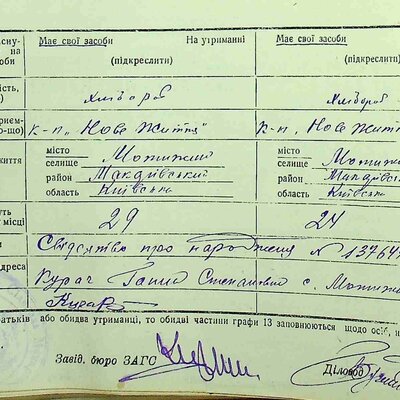 існу- Має свої засоби На утриманні Має свої засоби
на (підкреслити) (підкреслити)
оби
ість, Хлібороб Хлібороб
)
приєм- к-п „Нове Життя" к-п „Нове Життя
що)
життя місто Мотижин місто Мотижин
селище селище
район Макарівський район Макарівський
область Київська область Київська
уть 29 24
місці
Свідоцтво про народження N 13764
дреса Курач Ганна Степанівна с. Мотижин
Курач
атьків або обидва утриманці, то обидві частини графи 13 заповнюються щодо осіб,
Завід. бюро ЗАГС Діловод